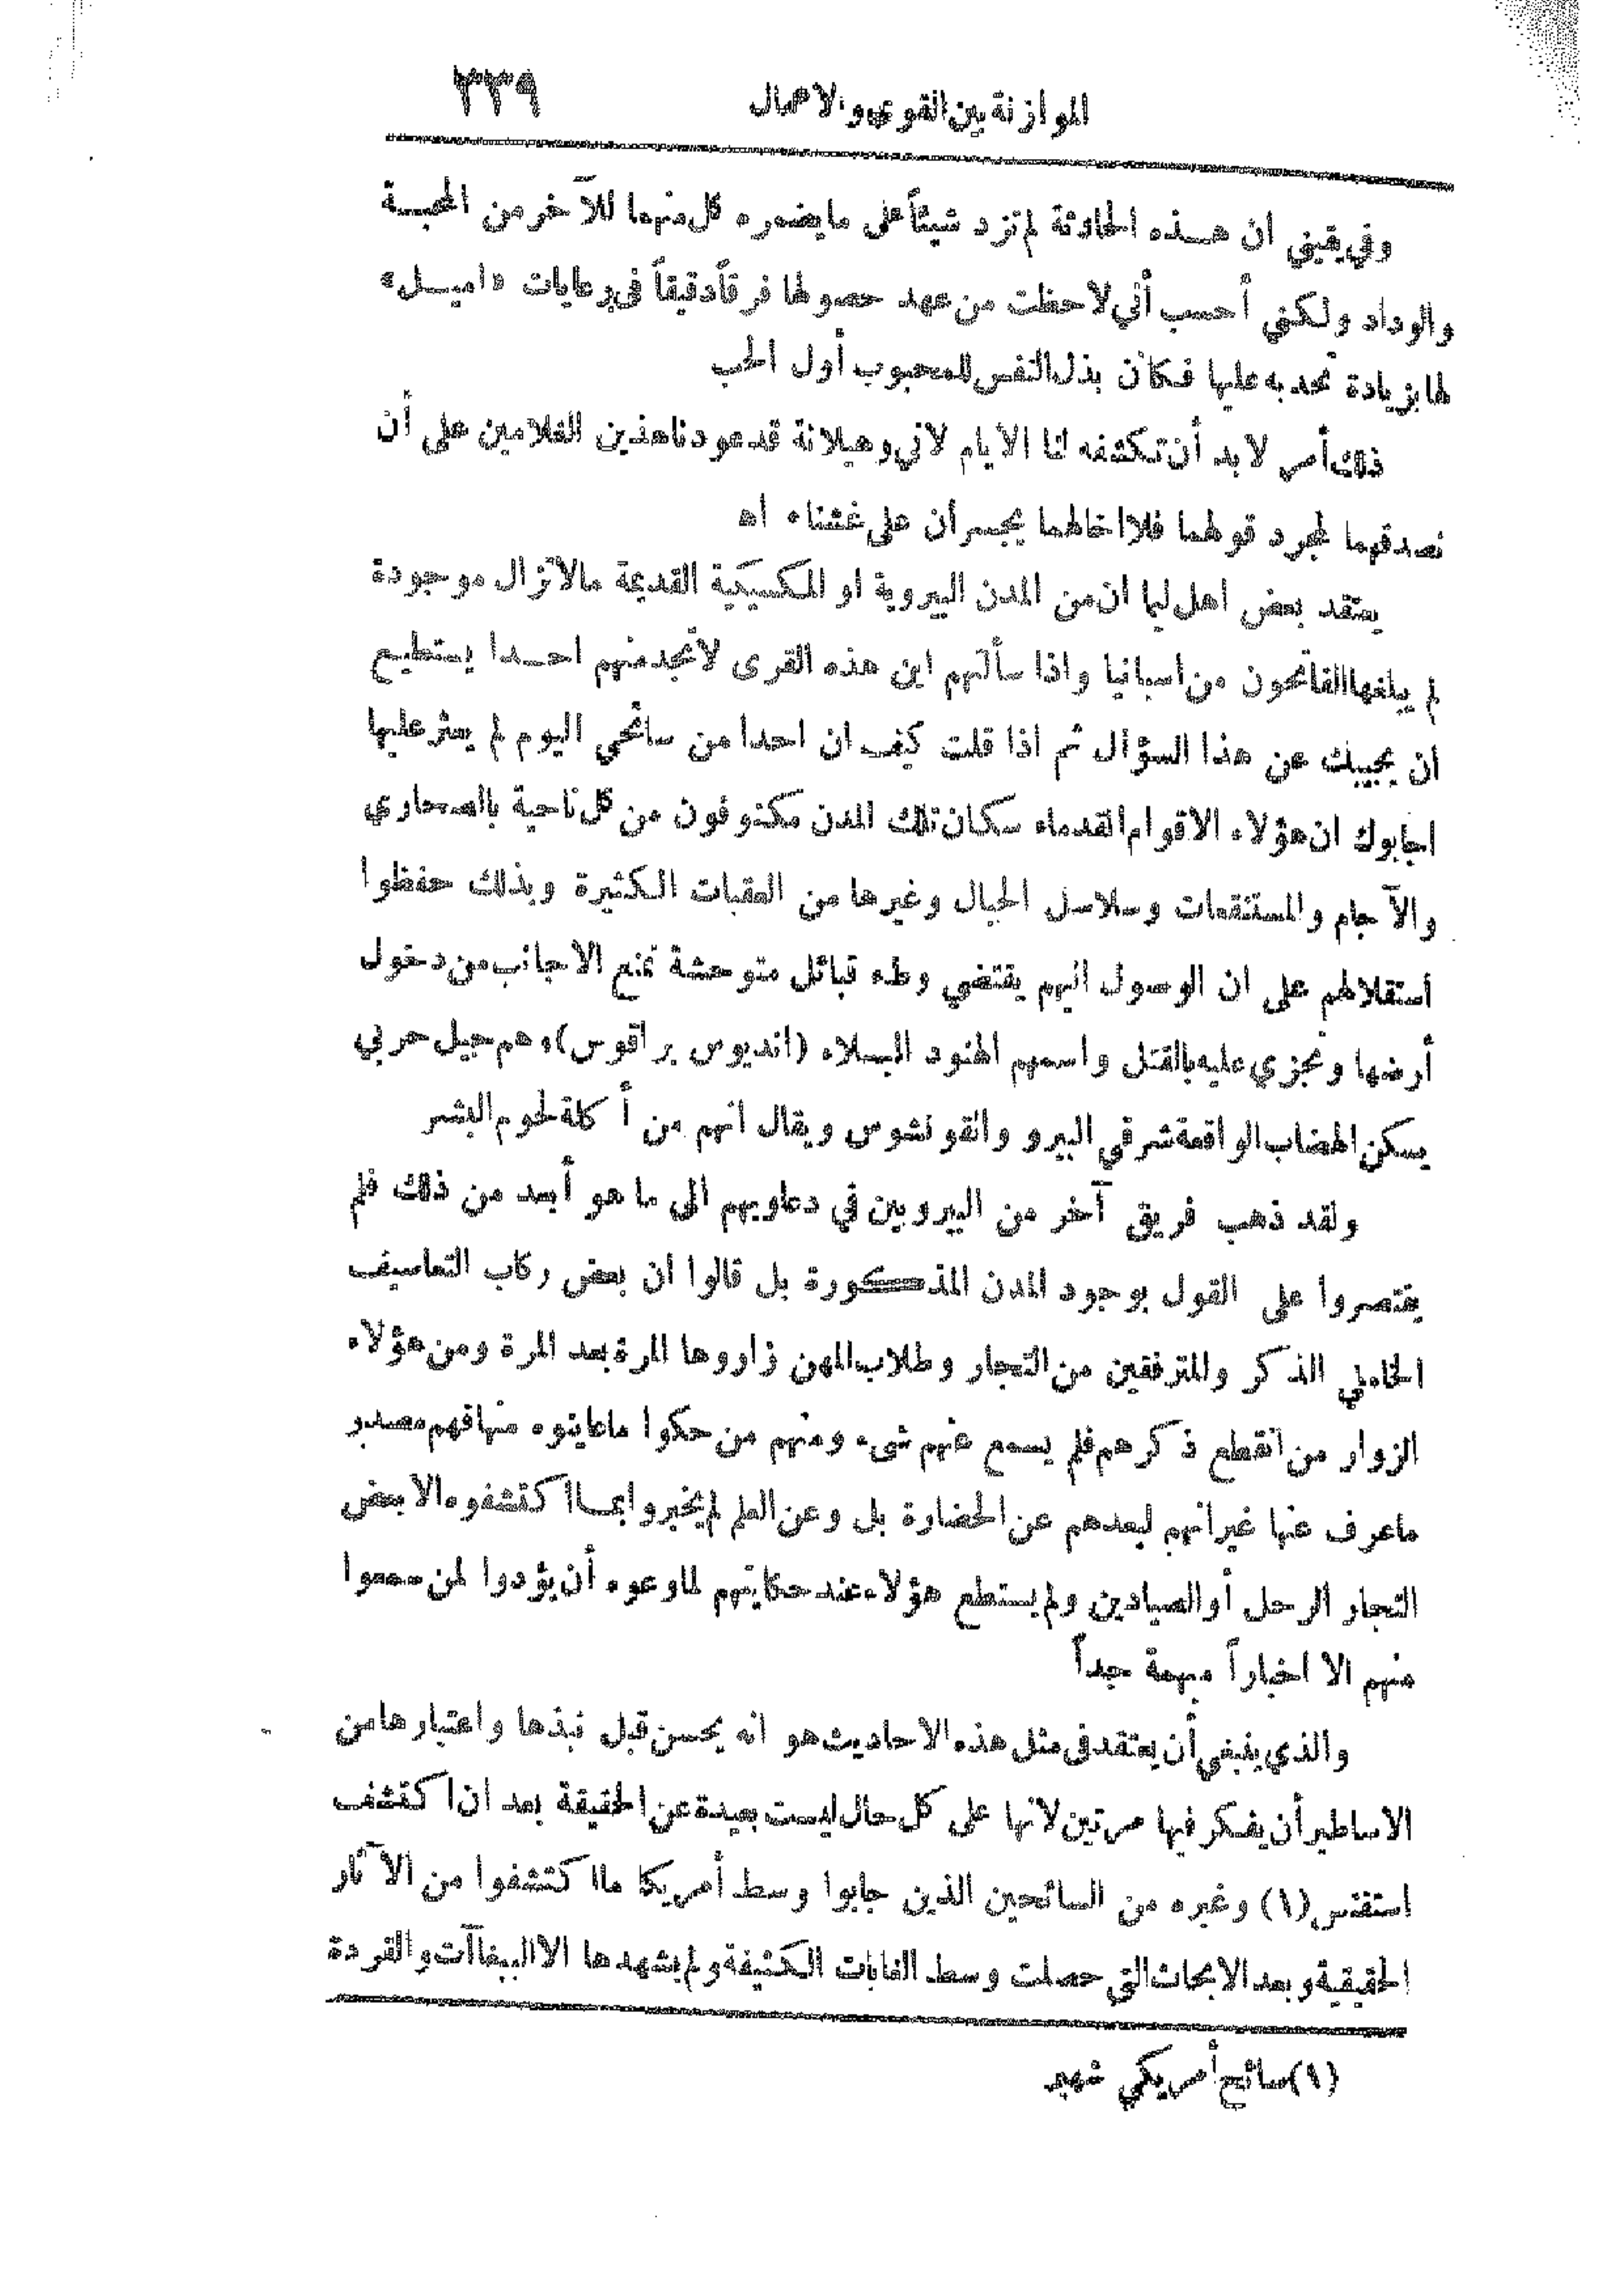 الموازنة بين القوى والاعمال
٣٣٩
وفي يقيني ان هذه الحادثة لم تزد شيئاً على ما يضمره كل منهما للآخر من المحبة
والوداد ولكني أحسب أني لاحظت من عهد حصولها فرقاً دقيقاً في رعايات «اميل»
لها بزيادة تحدبه عليها فكان بذل النفس للمحبوب أول الحب
ذلك أمر لا بد أن تكشفه لنا الأيام لاني وهيلانة قد عودنا هذين الغلامين على أن
نصدقهما لمجرد قولهما فلا اخالهما يجسرأن على غشنا . اه
يعتقد بعض اهل ليما ان من المدن البيروية او المكسيكية القديمة مالا تزال موجودة
لم يبلغها الفاتحون من اسبانيا واذا سألتهم اين هذه القرى لا تجد منهم احدا يستطيع
ان يجيبك عن هذا السؤال ثم اذا قلت كيف ان احدا من سائحي اليوم لم يعثر عليها
اجابوك ان هؤلاء الاقوام القدماء سكان تلك المدن مكنوفون من كل ناحية بالصحاري
والآجام والمستنقعات وسلاسل الجبال وغيرها من العقبات الكثيرة وبذلك حفظوا
استقلالهم على ان الوصول اليهم يقتضي وطء قبائل متوحشة تمنع الاجانب من دخول
أرضها وتجزي عليه بالقتل واسمهم الهنود البسلاء (انديوس براقوس) وهم جيل حربي
يسكن الهضاب الواقعة شرقي البيرو وانقونشوس ويقال انهم من أكلة لحوم البشر
ولقد ذهب فريق آخر من البيرويين في دعاويهم الى ما هو أبعد من ذلك فلم
يقتصروا على القول بوجود المدن المذكورة بل قالوا ان بعض ركاب التعاسيف
الخاملي الذكر والمترفقين من التجار وطلاب المهن زاروها المرة بعد المرة ومن هؤلاء
الزوار من انقطع ذكرهم فلم يسمع عنهم شيء ومنهم من حكوا ما عاينوه منها فهم مصدر
ماعرف عنها غير انهم لبعدهم عن الحضارة بل وعن العلم لم يخبروا بما اكتشفوه الا بعض
التجار الرحل أو الصيادين ولم يستطع هؤلاء عند حكايتهم لما وعوه أن يؤدوا لمن سمعوا
منهم الا اخباراً مبهمة جداً
والذي ينبغي أن يعتقد في مثل هذه الاحاديث هو انه يحسن قبل نبذها واعتبارها من
الاساطير أن يفكر فيها مرتين لانها على كل حال ليست بعيدة عن الحقيقة بعد ان اكتشف
استفنس (١) وغيره من السائحين الذين جابوا وسط أمريكا ما اكتشفوا من الآثار
الحقيقية وبعد الابحاث التي حصلت وسط الغابات الكثيفة ولم يشهدها الا الببغاآت والقردة
(١) سائح أمريكي شهير